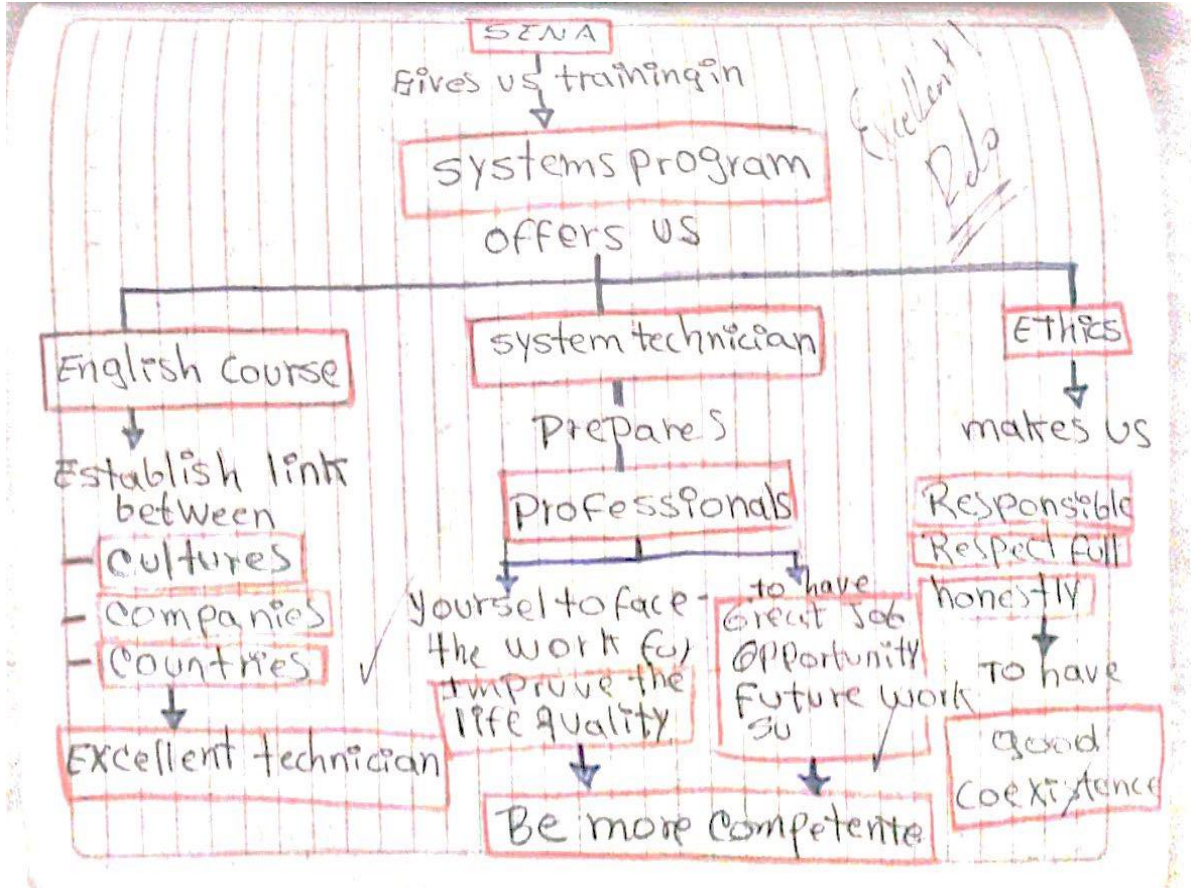 SENA
Gives us training in
systems program
offers us
Excellent!
English Course
Establish link
between
- cultures
- companies
- countries
Excellent technician
system technician
prepares
professionals
yoursel to face
the work
improve the
life quality
to have
Great Job
opportunity
Future work
su
Be more competente
Ethics
makes us
Responsible
Respect full
honestly
To have
good
coexistence